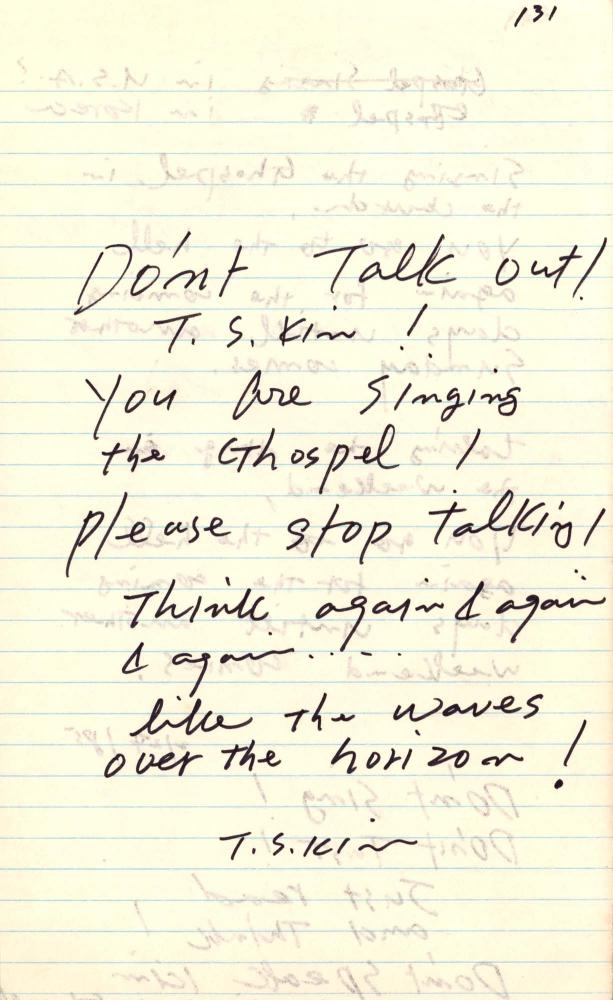 131
Don't Talk out!
T. S. Kim !
You Are Singing
the Ghospel !
please stop talking!
Think again & again
& again.....
like the waves
over the horizon !
T.S.Kim